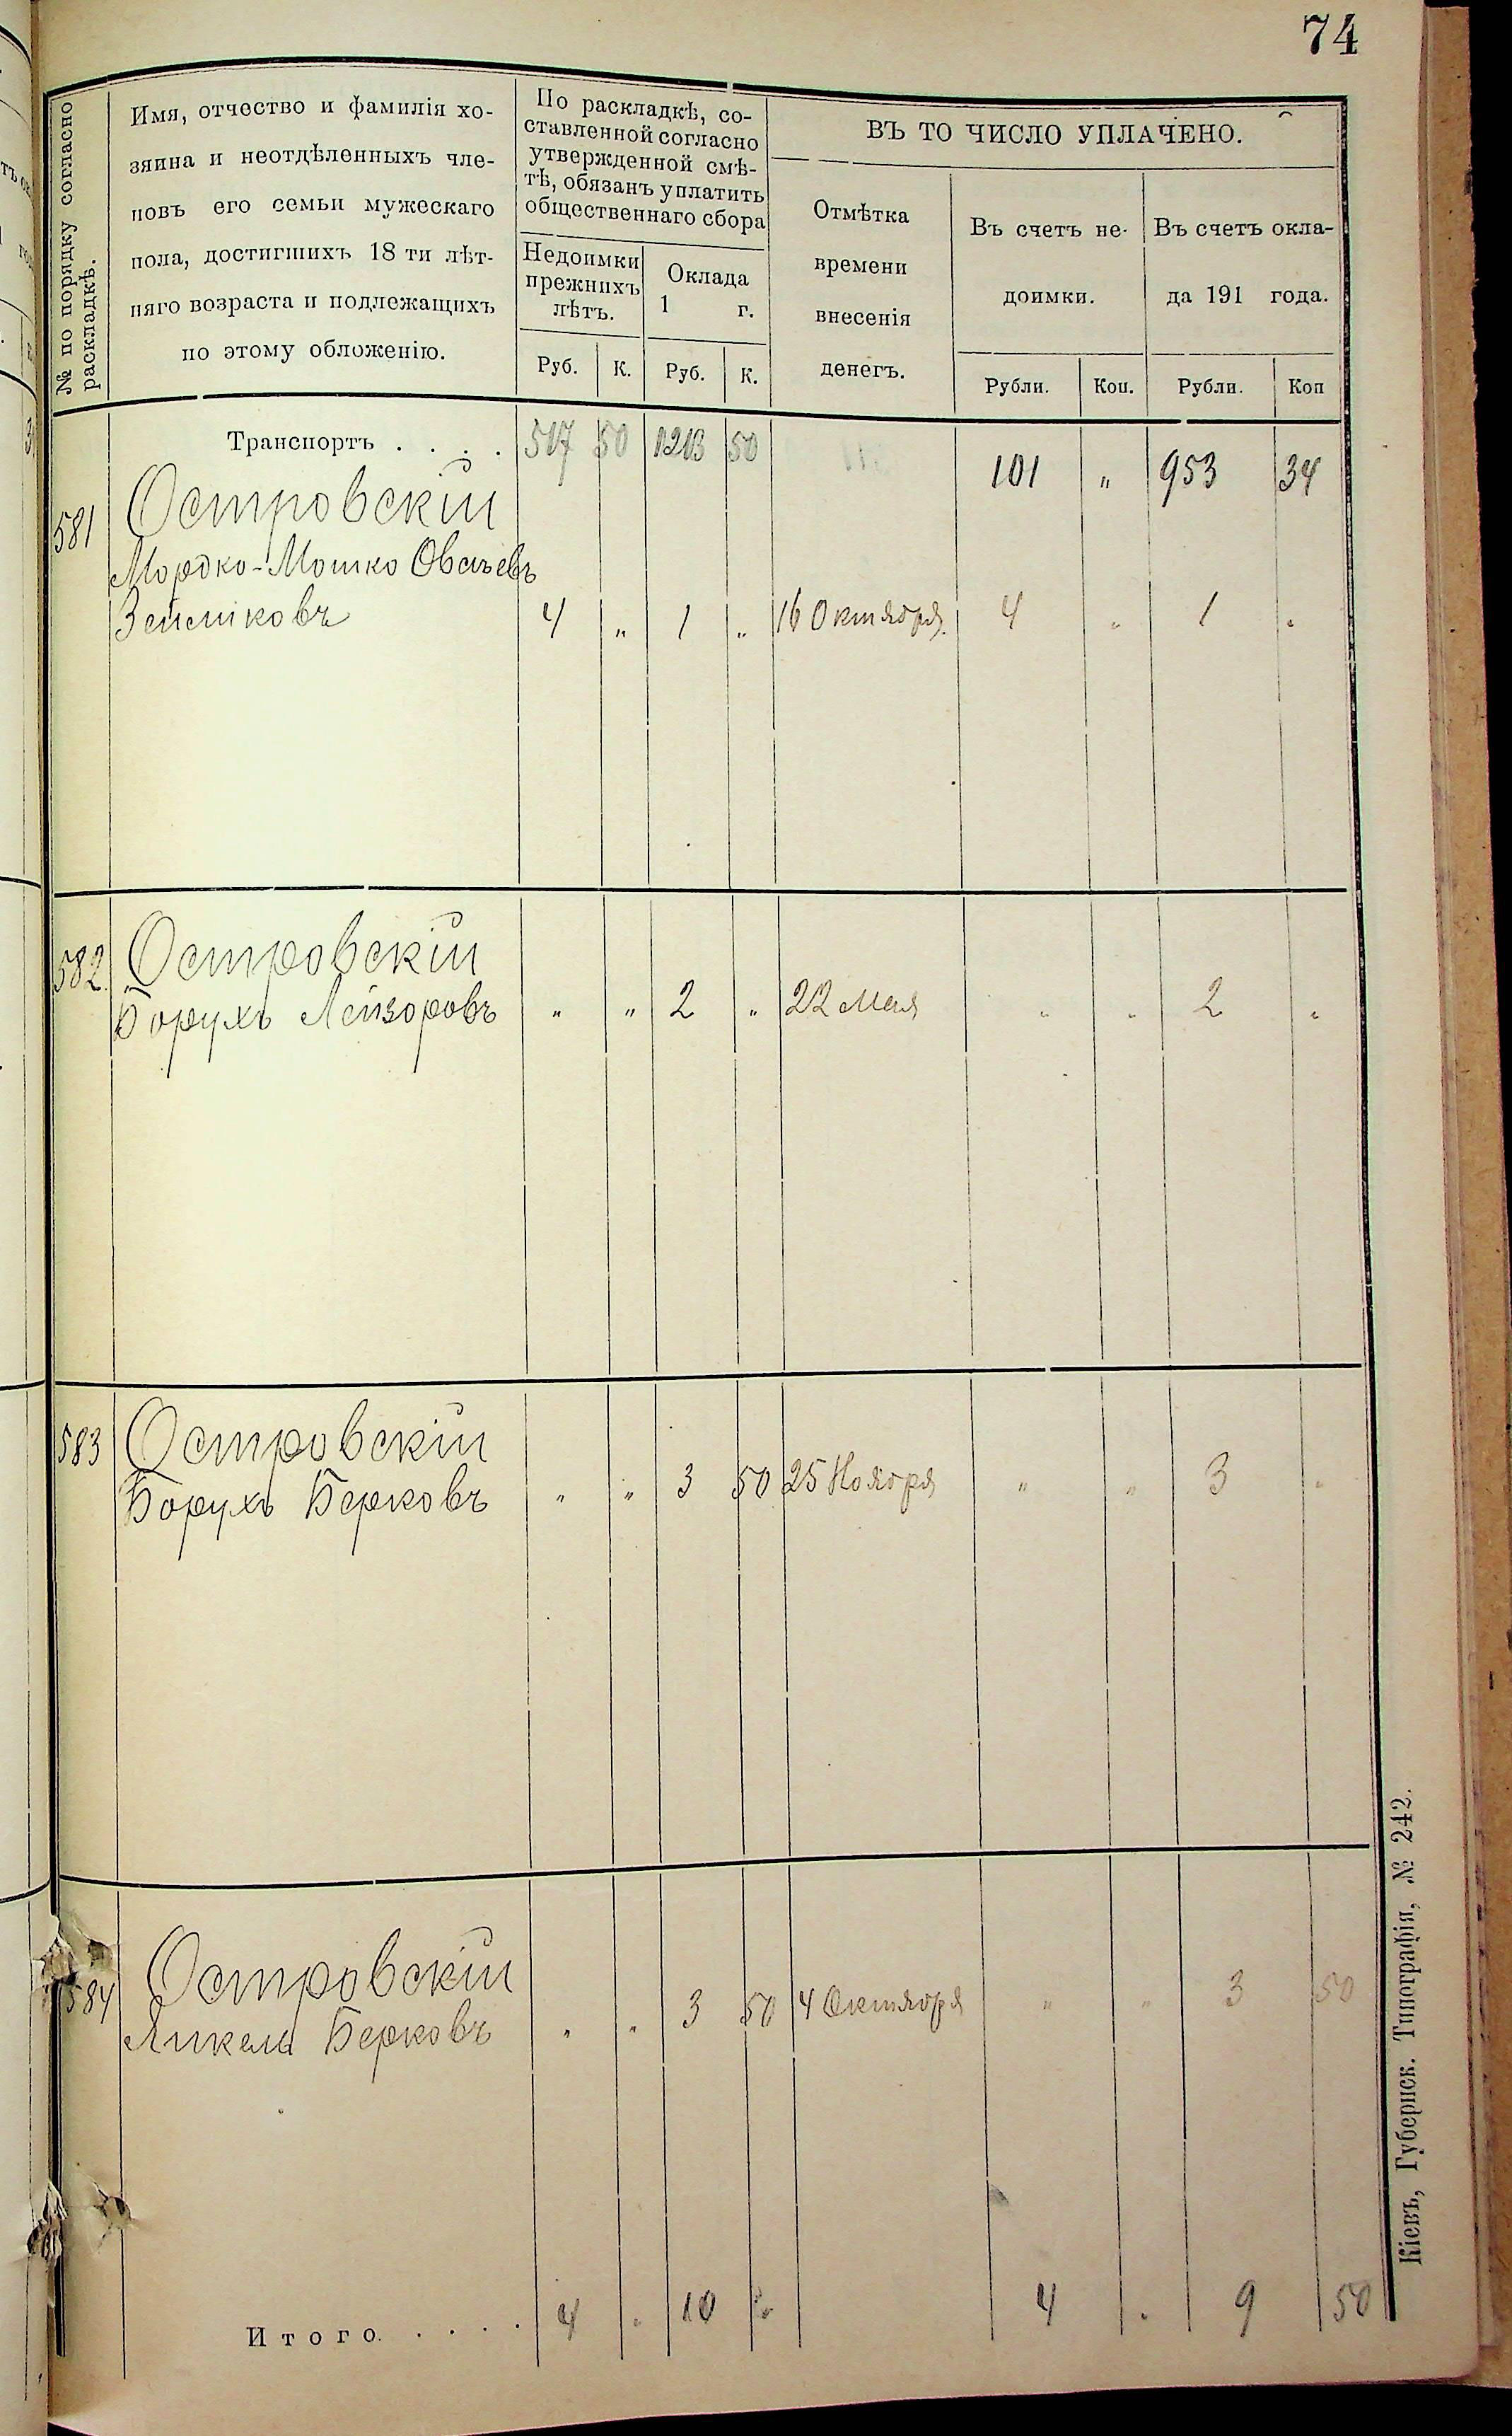 74
№ по порядку согласно раскладкѣ.
Имя, отчество и фамилія хо-
зяина и неотдѣленныхъ чле-
новъ его семьи мужескаго
пола, достигшихъ 18 ти лѣт-
няго возраста и подлежащихъ
по этому обложенію.
По раскладкѣ, со-
ставленной согласно
утвержденной смѣ-
тѣ, обязанъ уплатить
общественнаго сбора
Недоимки
прежнихъ
лѣтъ.
Оклада
1 г.
Руб. К. Руб. К.
ВЪ ТО ЧИСЛО УПЛАЧЕНО.
Отмѣтка
времени
внесенія
денегъ.
Въ счетъ не-
доимки.
Въ счетъ окла-
да 191 года.
Рубли. Коп. Рубли. Коп
Транспортъ . . . . 517 50 1213 50 101 " 953 34
581 Островскій
Мордко-Мошко Овсѣевъ
Зейликовъ 4 " 1 " 16 Октября. 4 " 1 "
582. Островскій
Борухъ Лейзоровъ " " 2 " 22 Мая " " 2 "
583 Островскій
Борухъ Берковъ " " 3 50 25 Ноября " " 3 "
584 Островскій
Янкель Берковъ " " 3 50 4 Октября " " 3 50
Итого. . . . . 4 " 10 " 4 " 9 50
Кіевъ, Губернск. Типографія, № 242.